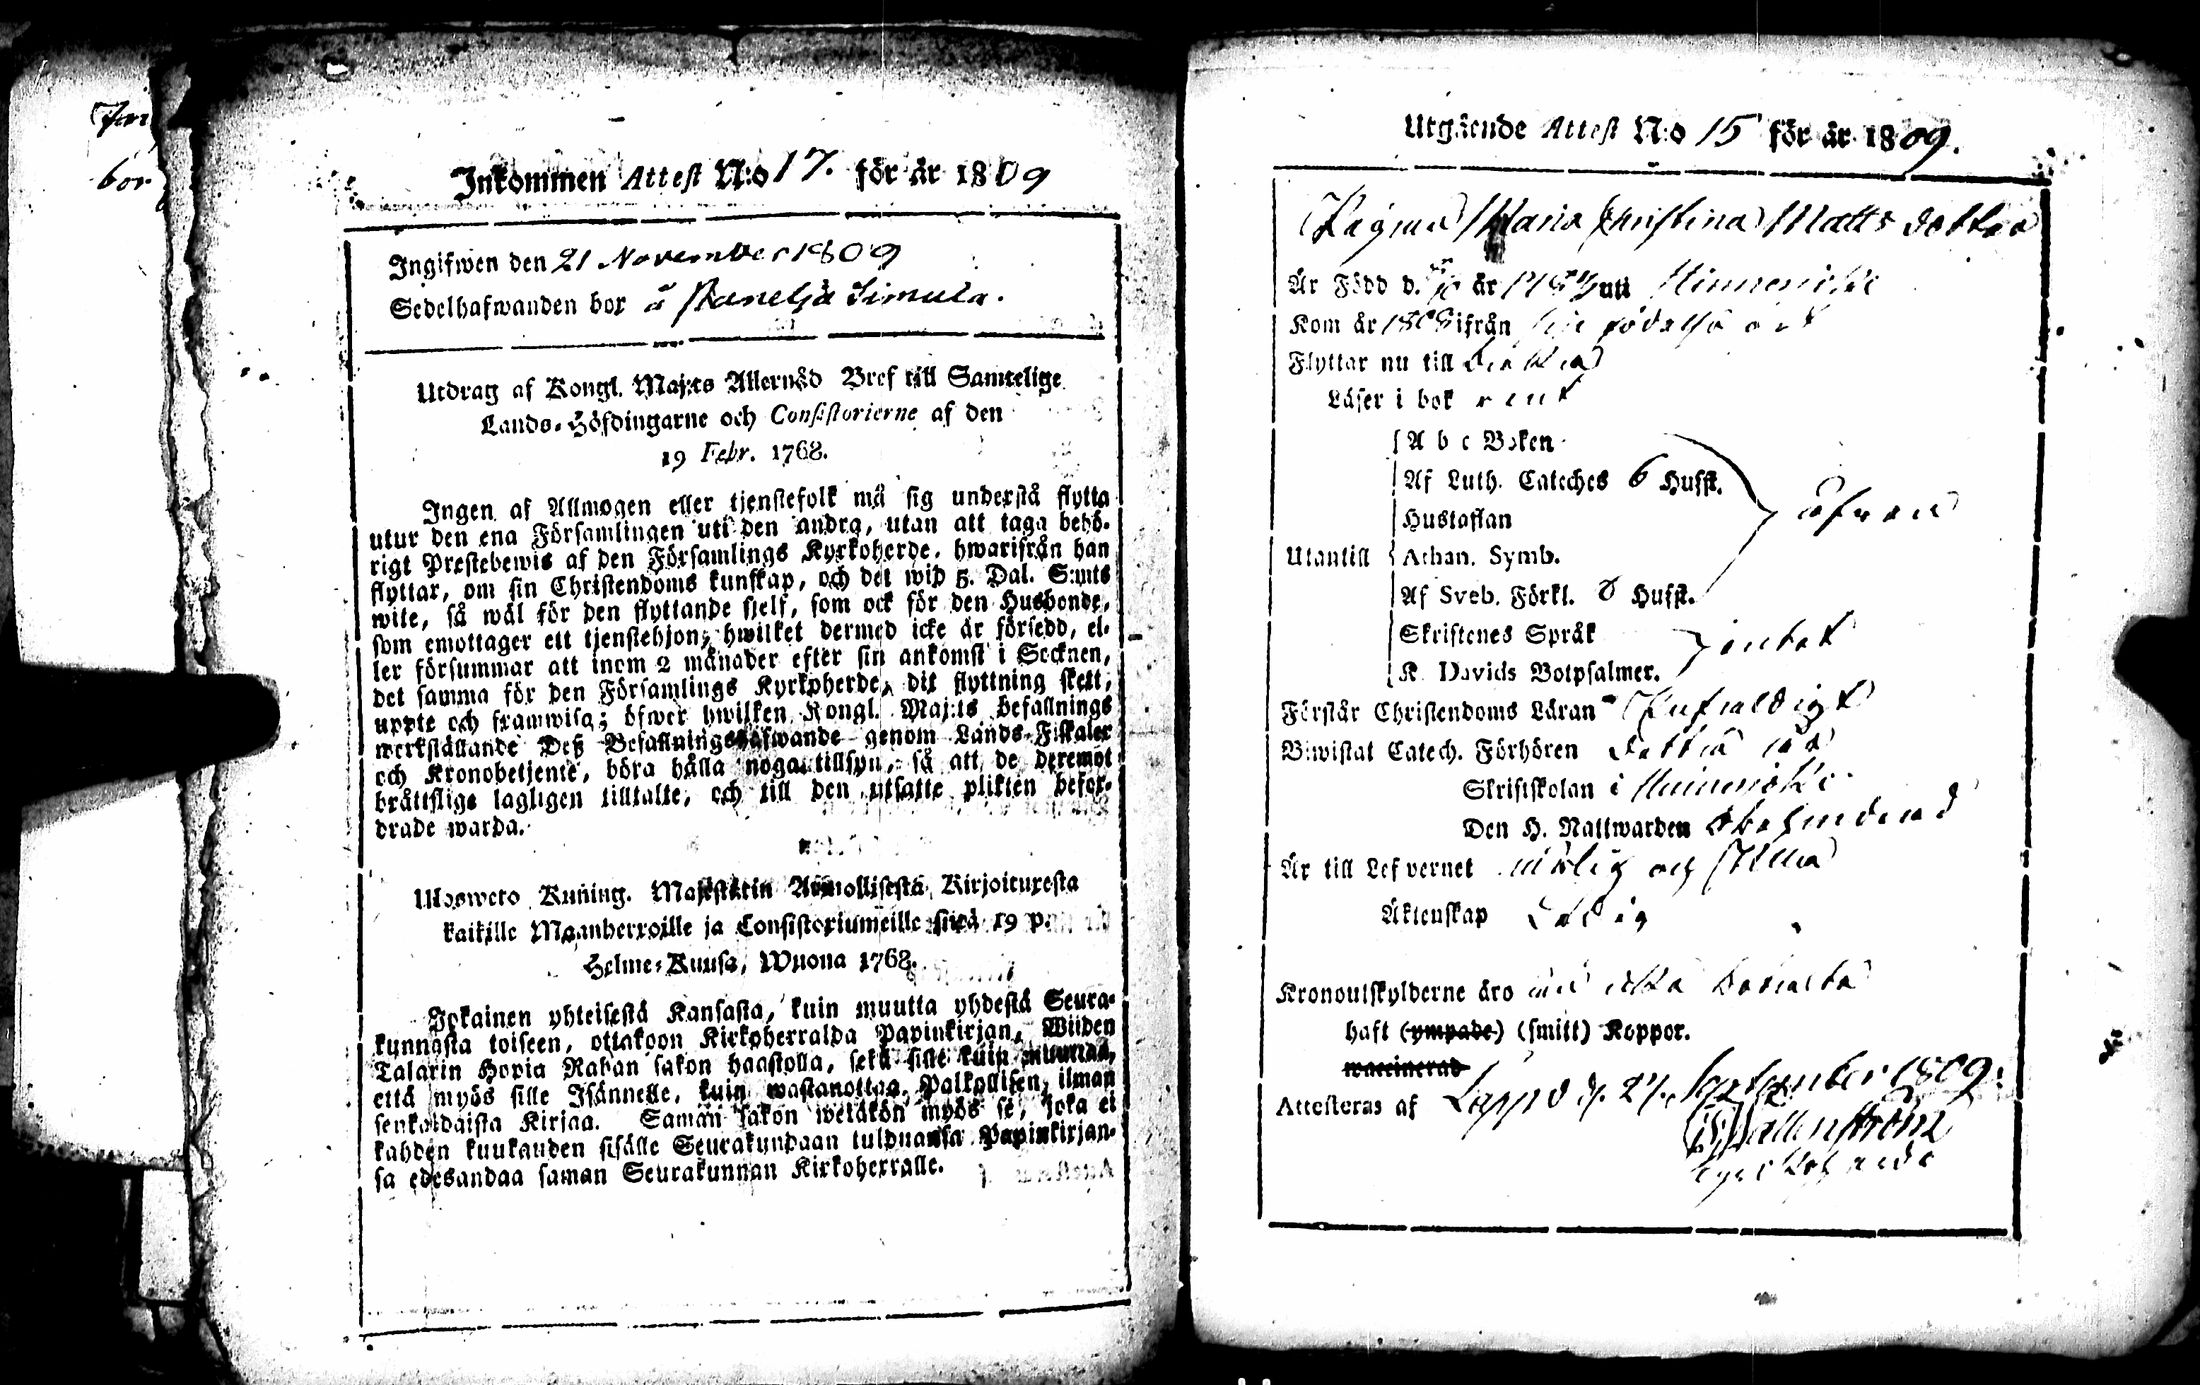 Inkommen Attest N:o 17. för år 1809
Ingifwen den 21 November 1809
Sedelhafwanden bor å Simula.
Utdrag af Kongl. Maj:ts Allernåd Bref till Samtelige
Lands-Höfdingarne och Consistorierne af den
19 Febr. 1768.
Ingen af Allmogen eller tjenstefolk må sig understå flytta
utur den ena Församlingen uti den andra, utan att taga behö-
rigt Prestebewis af den Församlings Kyrkoherde, hwarifrån han
flyttar, om sin Christendoms kunskap, och det wid 5. Dal. S:mts
wite, så wäl för den flyttande sjelf, som ock för den Husbonde,
som emottager ett tjenstehjon, hwilket dermed icke är försedd, el-
ler försummar att inom 2 månader efter sin ankomst i Socknen,
det samma för den Församlings Kyrkoherde, dit flyttning skett,
uppte och framwisa; öfwer hwilken Kongl. Maj:ts befallnings
werkställande Deß Befallningshafwande genom Lands-Fiskaler
och Kronobetjente, böra hålla noga tillsyn, så att de deremot
bråttslige lagligen tilltalte, och till den utsatte plikten befor-
drade warda.
Ulosweto Kuning. Majestetin Armollisesta Kirjoituxesta
kaikille Maanherroille ja Consistoriumeille siitä 19 p.
Helme-Kuusa, Wuona 1768.
Jokainen yhteisestä Kansasta, kuin muutta yhdestä Seura-
kunnasta toiseen, ottakoon Kirkoherralda Papinkirjan, Wiiden
Talarin Hopia Rahan sakon haastolla, sekä sille kuin muuttaa,
että myös sille Isännelle, kuin wastanottaa Palkollisen, ilman
senkaldaista Kirjaa. Saman sakon wetäkön myös se, joka ei
kahden kuukauden sisälle Seurakundaan tulduansa Papinkirjan-
sa edesandaa saman Seurakunnan Kirkoherralle.
Utgående Attest N:o 15 för år 1809.
Pigan Maria Christina Matts dotter
Är Född d. år uti
Kom år 1808 ifrån sin födelse ort
Flyttar nu till
Läser i bok rent
A b c Boken
Af Luth. Cateches 6 Hufst.
Hustaflan
Utantill Athan. Symb.
Af Sveb. Förkl. Hufst.
Skriftenes Språk intet
K. Davids Botpsalmer.
Förstår Christendoms Läran Enfaldigt
Biwistat Catech. Förhören detta år
Skriftskolan i
Den H. Nattwarden
Är till Lefvernet och stilla
Äktenskap Ledig
Kronoutskylderne äro
haft (ympade) (smitt) Koppor.
waccinerad
Attesteras af Lappo d. 27. September 1809.